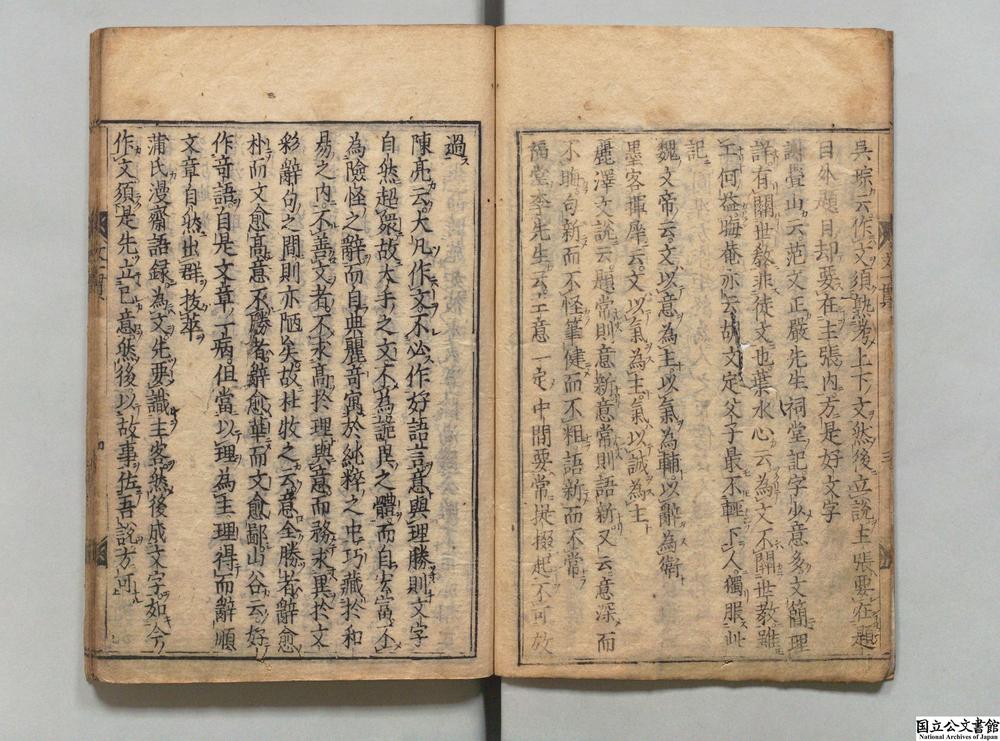 吳琮云作文須熟考上下文然後立說主張要在題
目外題目却要在主張內方是好文字
謝疊山云范文正嚴先生祠堂記字少意多文簡理
詳有關世敎非徒文也葉水心云為文不關世敎雖
工何益晦庵亦云胡文定父子最不輕下人獨服此
記
魏文帝云文以意為主以氣為輔以辭為衛
墨客揮犀云文以氣為主氣以誠為主
麗澤文說云題常則意新意常則語新又云意深而
不晦句新而不怪筆健而不粗語新而不常
福堂李先生云立意一定中間要常提掇起不可放
過
陳亮云大凡作文不必作好語言意與理勝則文字
自然超衆故大手之文不為詭異之體而自宏富不
為險怪之辭而自典麗奇寓於純粹之中巧藏於和
易之內不善文者不求高於理與意而務求異於文
彩辭句之間則亦陋矣故杜牧之云意全勝者辭愈
朴而文愈高意不勝者辭愈華而文愈鄙山谷云好
作奇語自是文章一病但當以理為主理得而辭順
文章自然出群拔萃
蒲氏漫齋語録為文先要識主客然後成文字如今
作文須是先立己意然後以故事佐吾說方可
国立公文書館
National Archives of Japan